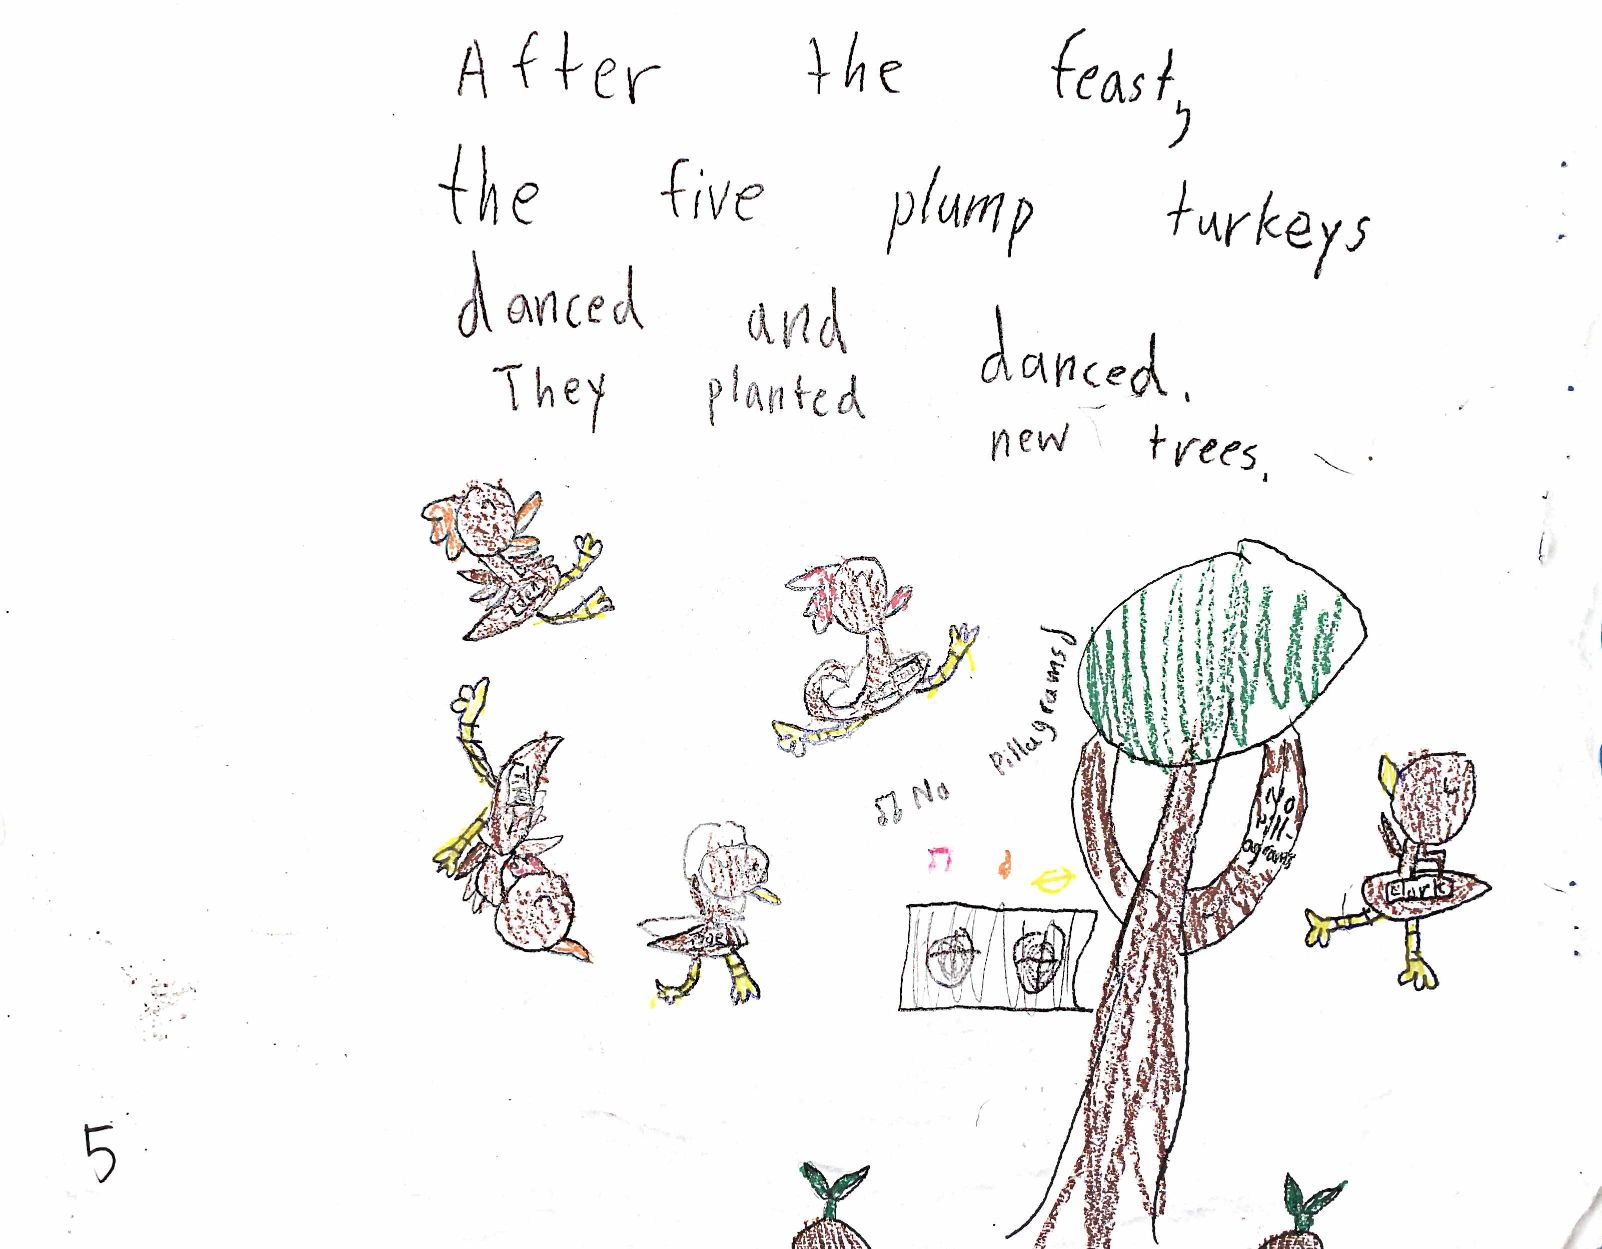 After the feast,
the five plump turkeys
danced and danced.
They planted new trees.
No Pillagrams
No
Pill-
agrams
Clark
5